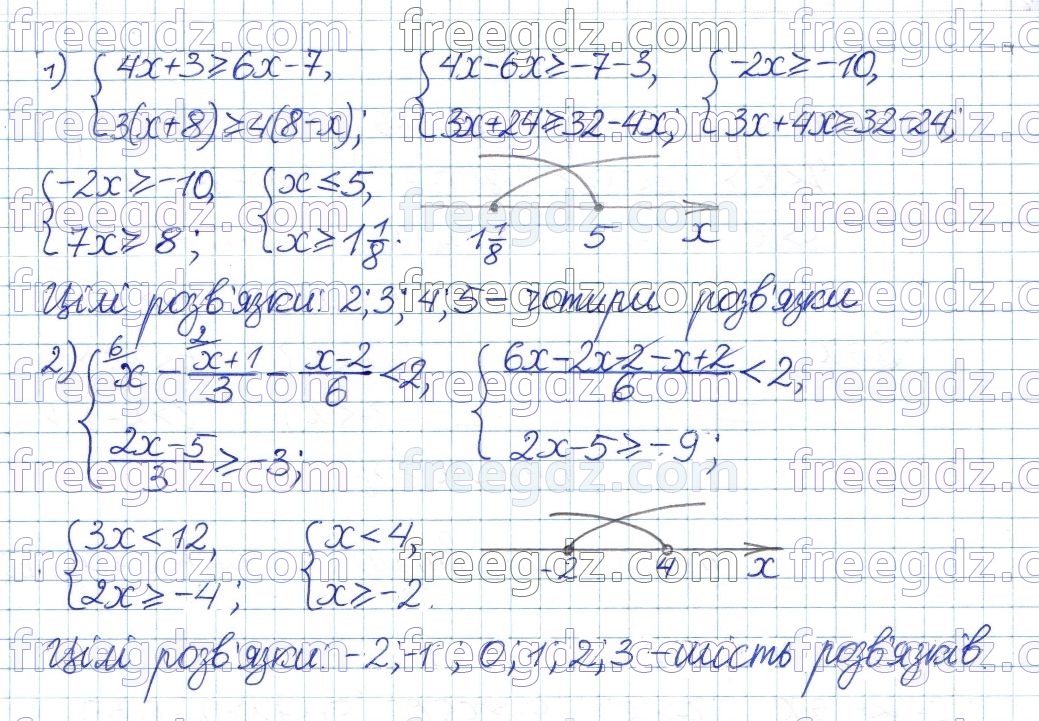 1) { 4x+3≥6x-7, 3(x+8)≥4(8-x); { 4x-6x≥-7-3, 3x+24≥32-4x; { -2x≥-10, 3x+4x≥32-24;
{ -2x≥-10, 7x≥8; { x≤5, x≥1 1/8. 1 1/8 5 x
Цілі розв'язки: 2; 3; 4; 5 – чотири розв'язки
2) { 6/ x - 2/ (x+1)/3 - (x-2)/6 < 2, (2x-5)/3 ≥ -3; { (6x-2x-2-x+2)/6 < 2, 2x-5≥-9;
{ 3x<12, 2x≥-4; { x<4, x≥-2. -2 4 x
Цілі розв'язки: -2; -1; 0; 1; 2; 3 – шість розв'язків.
freegdz.com